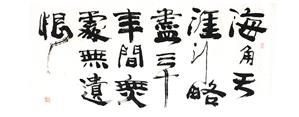 海角天
涯行略
盡三十
年間無
處無遺
恨